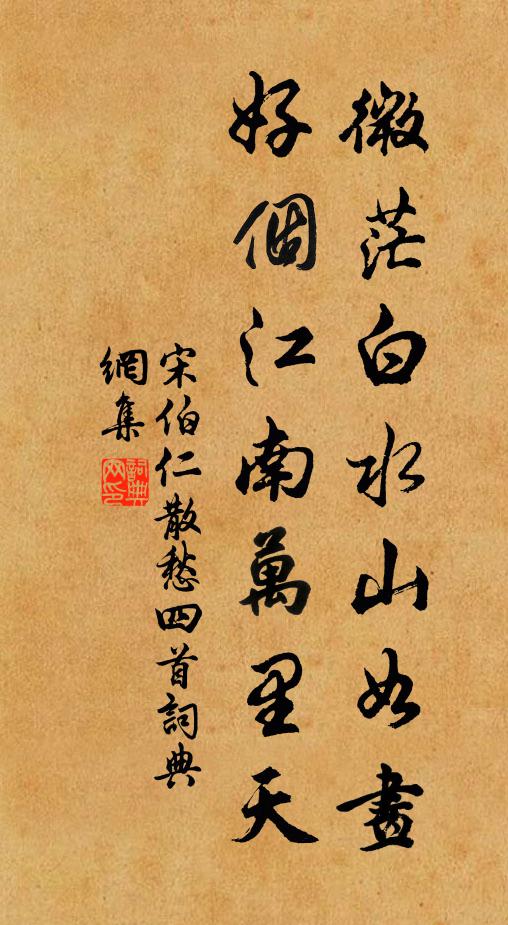 微茫白水山如畫
好個江南萬里天
宋伯仁散愁四首詞典
網集
詞典
网印